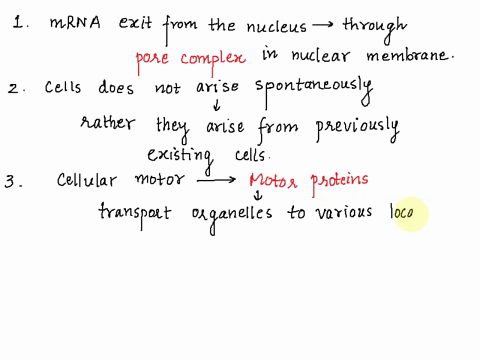 1. mRNA exit from the nucleus → through
pore complex in nuclear membrane.
2. Cells does not arise spontaneously
↓
rather they arise from previously
existing cells.
3. Cellular motor → Motor proteins
↓
transport organelles to various loca